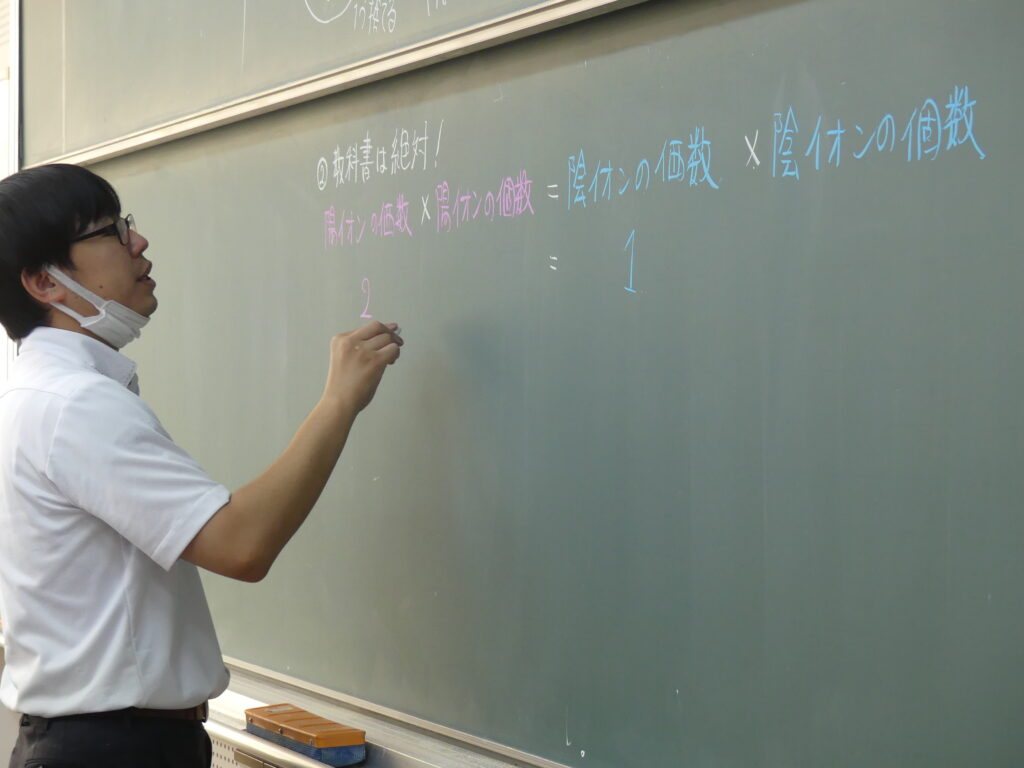 1つ捨てる
②教科書は絶対!
陽イオンの価数×陽イオンの個数=陰イオンの価数×陰イオンの個数
2 = 1